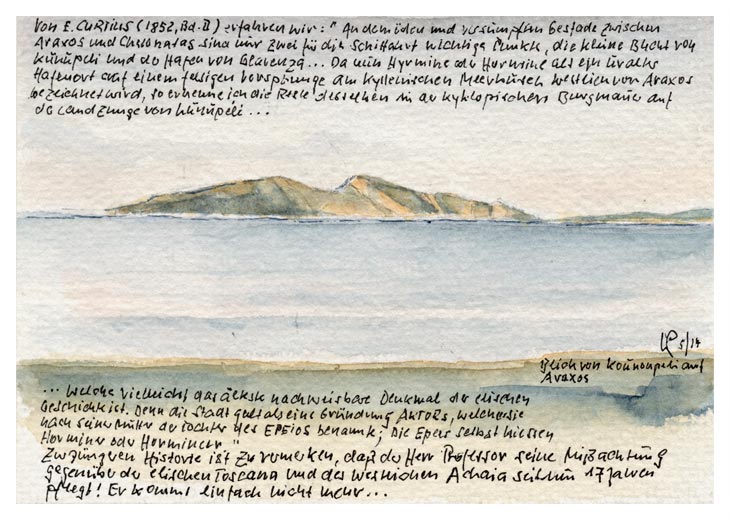 Von E. CURTIUS (1852, Bd. II) erfahren wir: " An dem öden und versumpften Gestade zwischen
Araxos und Chelonatas sind nur zwei für die Schiffahrt wichtige Punkte, die kleine Bucht von
Kunupeli und der Hafen von Glarenza... Da nun Hyrmine oder Hormine als ein uralter
Hafenort auf einem felsigen Vorsprunge am Kyllenischen Meerbusen westlich von Araxos
bezeichnet wird, so erkenne ich die Reste desselben in der kyklopischen Burgmauer auf
der Landzunge von Kunupeli ...
5/14
Blick von Kounoupeli auf
Araxos
... welche vielleicht das älteste nachweisbare Denkmal der elischen
Geschichte ist. Denn die Stadt galt als eine Gründung AKTORs, welcher sie
nach seiner Mutter der Tochter des EPEIOS benannte; Die Epeer selbst hiessen
Horminer oder Herminer "
Zur jüngeren Historie ist zu vermerken, daß der Herr Professor seine Mißachtung
gegenüber der elischen Toscana und des westlichen Achaia seit nun 17 Jahren
pflegt! Er kommt einfach nicht mehr...